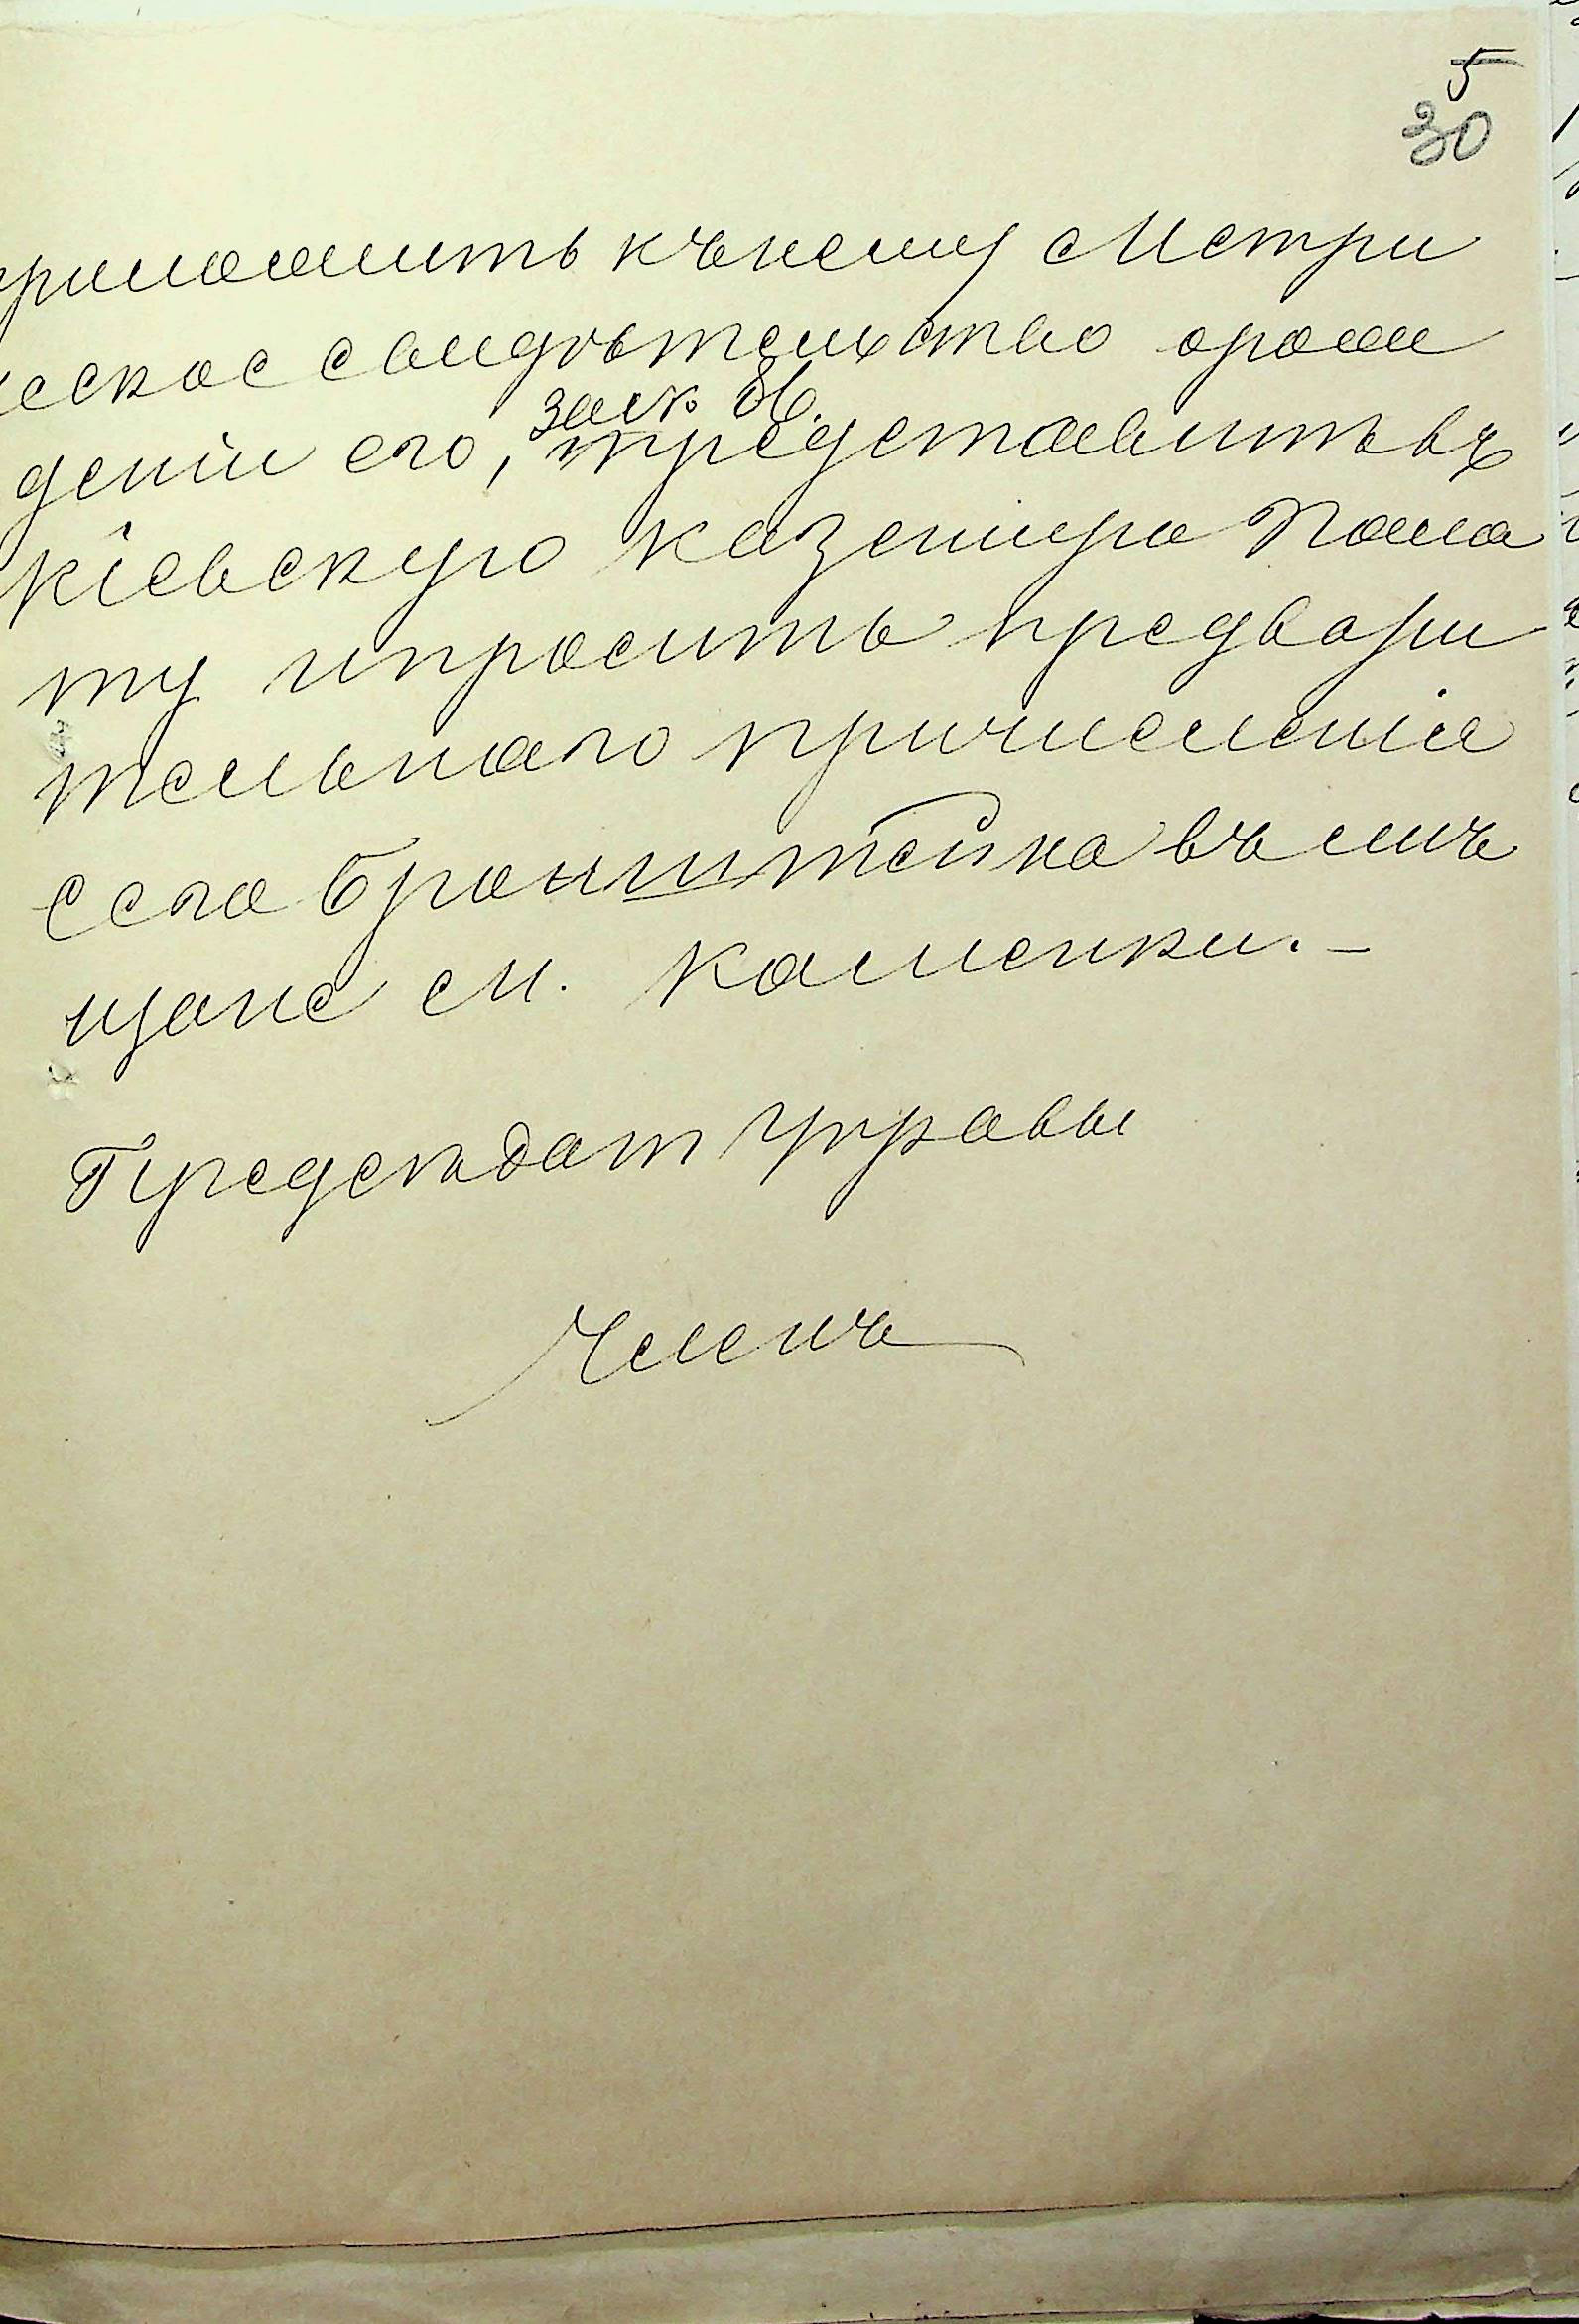 5
30
приложить къ нему Метри
ческое свидѣтельство о рожде
деніи его, представить въ
Кіевскую Казенную Пала
ту и просить предвари
тельнаго причисленія
сего Бронштейна въ мѣ
щане м. Каменки. –
Предсѣдат Управы
Членъ